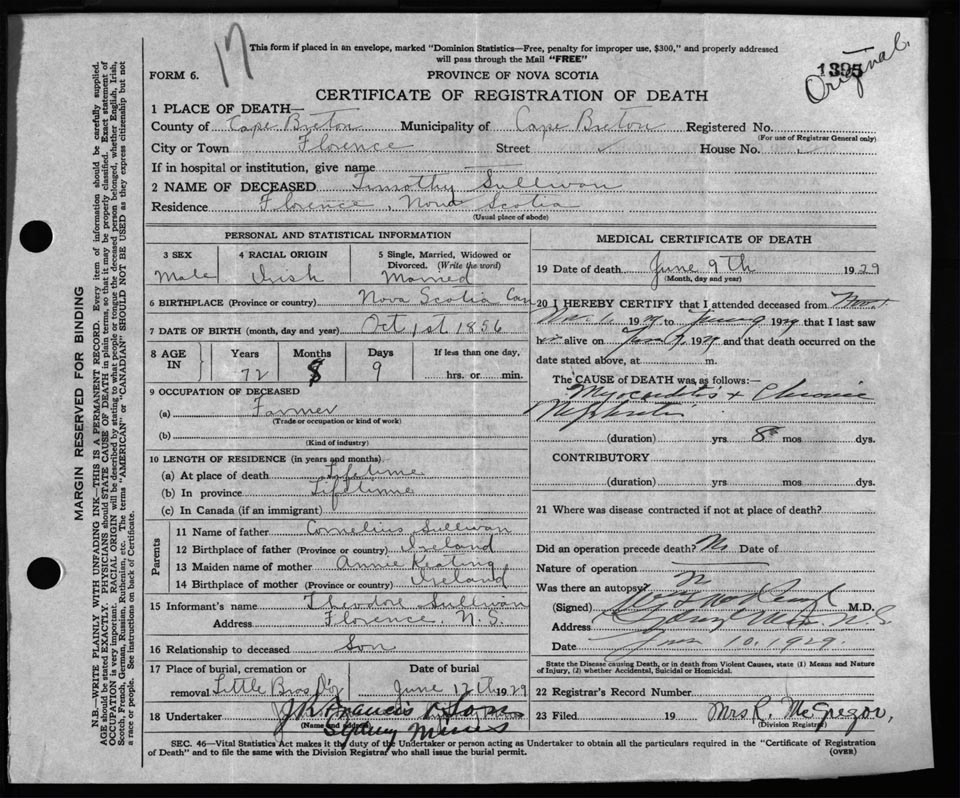 17
This form if placed in an envelope, marked "Dominion Statistics—Free, penalty for improper use, $300," and properly addressed
will pass through the Mail "FREE"
1395
Original
FORM 6.
PROVINCE OF NOVA SCOTIA
CERTIFICATE OF REGISTRATION OF DEATH
1 PLACE OF DEATH—
County of Cape Breton Municipality of Cape Breton Registered No.
(For use of Registrar General only)
City or Town Florence Street ✓ House No. ✓
If in hospital or institution, give name
2 NAME OF DECEASED Timothy Sullivan
Residence Florence, Nova Scotia
(Usual place of abode)
PERSONAL AND STATISTICAL INFORMATION
3 SEX
Male
4 RACIAL ORIGIN
Irish
5 Single, Married, Widowed or
Divorced. (Write the word)
Married
6 BIRTHPLACE (Province or country) Nova Scotia Can
7 DATE OF BIRTH (month, day and year) Oct 1st 1856
8 AGE
IN
Years
72
Months
8
Days
9
If less than one day,
hrs. or min.
9 OCCUPATION OF DECEASED
(a) Farmer
(Trade or occupation or kind of work)
(b)
(Kind of industry)
10 LENGTH OF RESIDENCE (in years and months)
(a) At place of death Lifetime
(b) In province Lifetime
(c) In Canada (if an immigrant)
Parents
11 Name of father Cornelius Sullivan
12 Birthplace of father (Province or country) Ireland
13 Maiden name of mother Annie Keating
14 Birthplace of mother (Province or country) Ireland
15 Informant's name Theodore Sullivan
Address Florence, N.S.
16 Relationship to deceased Son
17 Place of burial, cremation or Date of burial
removal Little Bras D'or June 12th 1929
18 Undertaker J.R. Francis & Sons
(Name and address)
Sydney Mines
MEDICAL CERTIFICATE OF DEATH
19 Date of death June 9th 1929
(Month, day and year)
20 I HEREBY CERTIFY that I attended deceased from
1929 to June 9 1929 that I last saw
h alive on June 9 1929 and that death occurred on the
date stated above, at m.
The CAUSE OF DEATH was as follows:—
Myocarditis & Chronic
Nephritis
(duration) yrs 8 mos dys.
CONTRIBUTORY
(duration) yrs. mos. dys.
21 Where was disease contracted if not at place of death?
Did an operation precede death? No Date of
Nature of operation
Was there an autopsy? N
(Signed) M.D.
Address Sydney Mines N.S.
Date June 10. 1929.
State the Disease causing Death, or in death from Violent Causes, state (1) Means and Nature
of Injury, (2) whether Accidental, Suicidal or Homicidal.
22 Registrar's Record Number
23 Filed 19 Mrs R. McGregor,
(Division Registrar)
SEC. 46—Vital Statistics Act makes it the duty of the Undertaker or person acting as Undertaker to obtain all the particulars required in the "Certificate of Registration
of Death" and to file the same with the Division Registrar who shall issue the burial permit. (OVER)
MARGIN RESERVED FOR BINDING
N.B.—WRITE PLAINLY WITH UNFADING INK—THIS IS A PERMANENT RECORD. Every item of information should be carefully supplied.
AGE should be stated EXACTLY. PHYSICIANS should STATE CAUSE OF DEATH in plain terms, so that it may be properly classified. Exact statement of
OCCUPATION is very important. RACIAL ORIGIN will be described by stating to what people or tongue the deceased person belonged, whether English, Irish,
Scotch, French, German, Russian, Ruthenian, etc. The terms "AMERICAN" or "CANADIAN" SHOULD NOT BE USED as they express citizenship but not
a race or people. See instructions on back of Certificate.